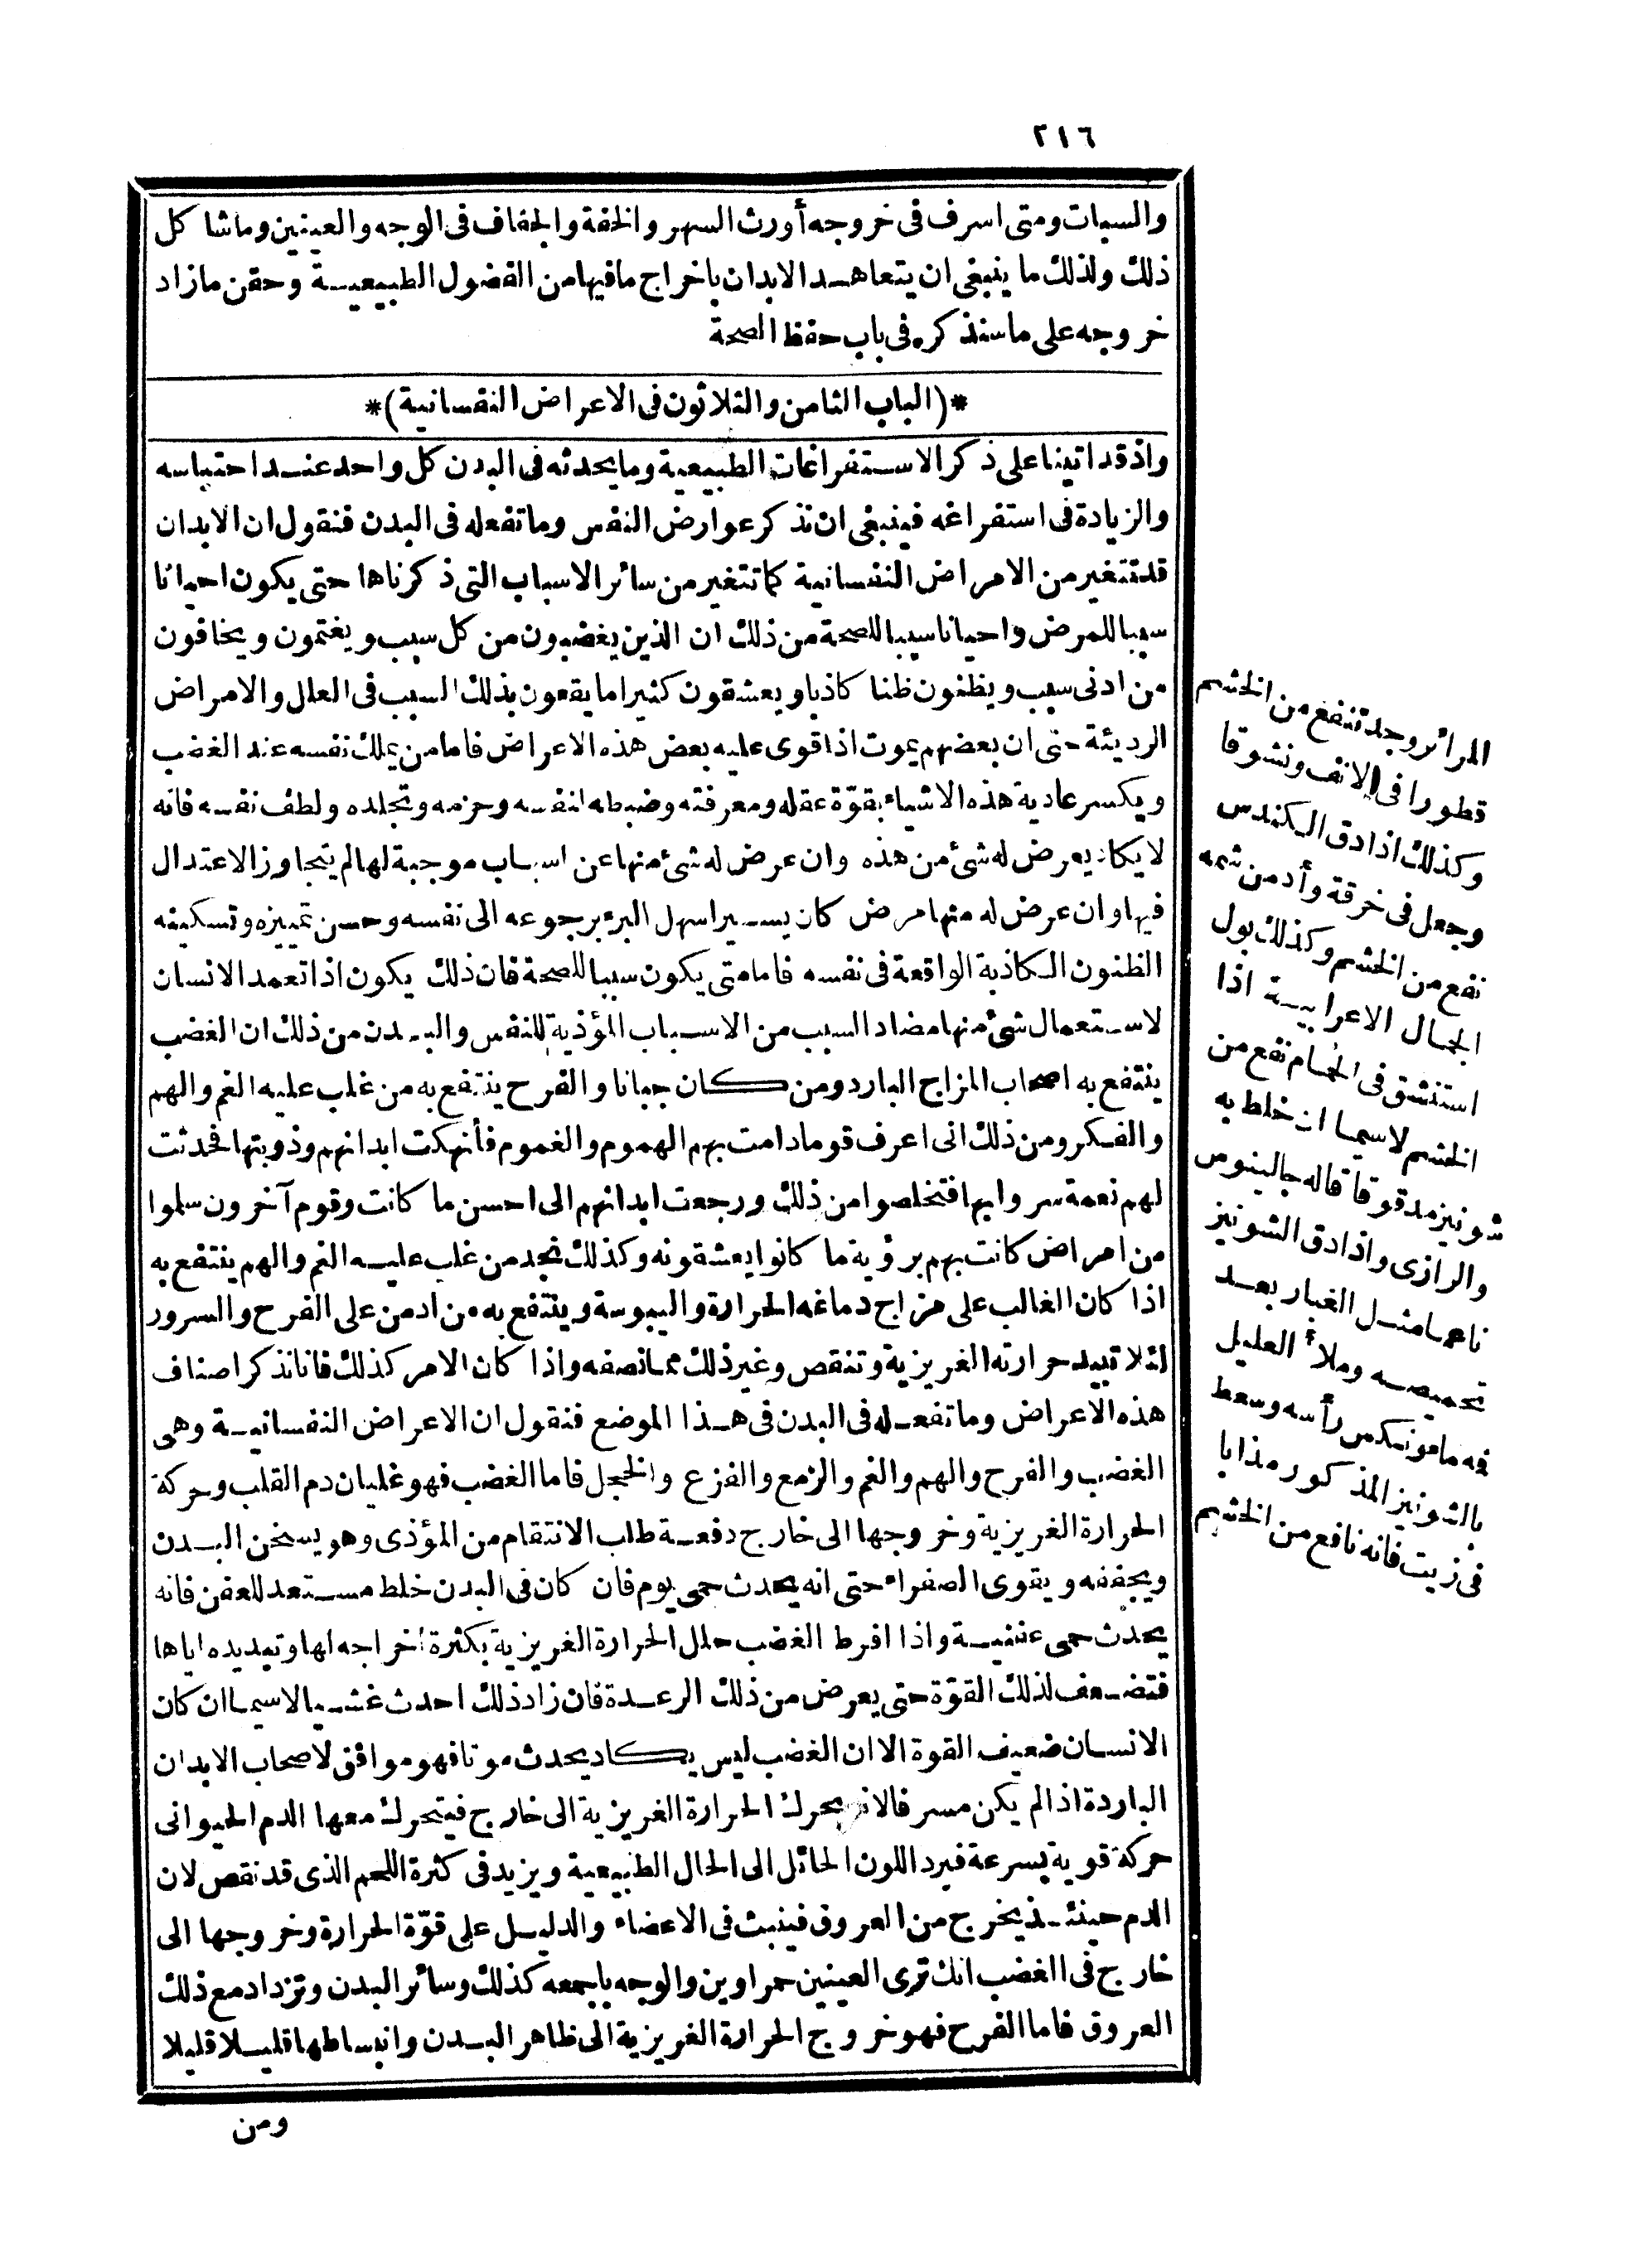 ٢١٦
والسبات ومتى اسرف فى خروجه أورث السهر والخفة والجفاف فى الوجه والعينين وماشا كل
ذلك ولذلك ما ينبغى ان يتعاهد الابدان باخراج مافيها من الفضول الطبيعية وحقن مازاد
خروجه على ماسنذكره فى باب حفظ الصحة
*(الباب الثامن والثلاثون فى الاعراض النفسانية)*
واذقد اتينا على ذكر الاستفراغات الطبيعية وما يحدثه فى البدن كل واحد عند احتباسه
والزيادة فى استفراغه فينبغى ان نذكر عوارض النفس وما تفعله فى البدن فنقول ان الابدان
قد تتغير من الامراض النفسانية كما تتغير من سائر الاسباب التى ذكرناها حتى يكون احيانا
سببا للمرض واحيانا سببا للصحة من ذلك ان الذين يغضبون من كل سبب ويغتمون ويخافون
من ادنى سبب ويظنون ظنا كاذبا ويعشقون كثيرا ما يقعون بذلك السبب فى العلل والامراض
الرديئة حتى ان بعضهم يموت اذا قوى عليه بعض هذه الاعراض فاما من يملك نفسه عند الغضب
ويكسر عادية هذه الاشياء بقوّة عقله ومعرفته وضبطه لنفسه وحزمه وتجلده ولطف نفسه فانه
لا يكاد يعرض له شئ من هذه وان عرض له شئ منها عن اسباب موجبة لها لم يتجاوز الاعتدال
فيها وان عرض له منها مرض كان يسيرا سهل البرء برجوعه الى نفسه وحسن تمييزه وتسكينه
الظنون الكاذبة الواقعة فى نفسه فاما متى يكون سببا للصحة فان ذلك يكون اذا تعمد الانسان
لاستعمال شئ منها مضاد السبب من الاسباب المؤذية للنفس والبدن من ذلك ان الغضب
ينتفع به اصحاب المزاج البارد ومن كان جبانا والفرح ينتفع به من غلب عليه الغم والهم
والفكر ومن ذلك انى اعرف قوما دامت بهم الهموم والغموم فأنهكت ابدانهم وذوبتها فحدثت
لهم نعمة سروا بها فتخلصوا من ذلك ورجعت ابدانهم الى احسن ما كانت وقوم آخرون سلموا
من امراض كانت بهم برؤية ما كانوا يعشقونه وكذلك نجد من غلب عليه الغم والهم ينتفع به
اذا كان الغالب على مزاج دماغه الحرارة واليبوسة وينتفع به من ادمن على الفرح والسرور
لئلا تبيد حرارته الغريزية وتنقص وغير ذلك مما نصفه واذا كان الامر كذلك فانا نذكر اصناف
هذه الاعراض وما تفعله فى البدن فى هذا الموضع فنقول ان الاعراض النفسانية وهى
الغضب والفرح والهم والغم والزمع والفزع والخجل فاما الغضب فهو غليان دم القلب وحركة
الحرارة الغريزية وخروجها الى خارج دفعة طلب الانتقام من المؤذى وهو يسخن البدن
ويجففه ويقوى الصفراء حتى انه يحدث حمى يوم فان كان فى البدن خلط مستعد للعفن فانه
يحدث حمى عفنية واذا افرط الغضب حلل الحرارة الغريزية بكثرة اخراجه لها وتبديده اياها
فتضعف لذلك القوّة حتى يعرض من ذلك الرعدة فان زاد ذلك احدث غشيا لاسيما ان كان
الانسان ضعيف القوة الا ان الغضب ليس يكاد يحدث موتا فهو موافق لاصحاب الابدان
الباردة اذا لم يكن مسرفا لانه يحرك الحرارة الغريزية الى خارج فيتحرك معها الدم الحيوانى
حركة قوية بسرعة فيرد اللون الحائل الى الحال الطبيعية ويزيد فى كثرة اللحم الذى قد نقص لان
الدم حينئذ يخرج من العروق فينبث فى الاعضاء والدليل على قوّة الحرارة وخروجها الى
خارج فى الغضب انك ترى العينين حمراوين والوجه باجمعه كذلك وسائر البدن وتزداد مع ذلك
العروق فاما الفرح فهو خروج الحرارة الغريزية الى ظاهر البدن وانبساطها قليلا قليلا
ومن
المرائر وجد تنفع من الخشم
قطورا فى الانف ونشوقا
وكذلك اذا دق الكندس
وجعل فى خرقة وأدمن شمه
نفع من الخشم وكذلك بول
الجمال الاعرابية اذا
استنشق فى الحمام نفع من
الخشم لاسيما ان خلط به
شونيز مدقوقا قاله جالينوس
والرازى واذا دق الشونيز
ناعما مثل الغبار بعد
تحميصه وملأ العليل
فه ماء ونكس رأسه وسعط
بالشونيز المذكور مذابا
فى زيت فانه نافع من الخشم